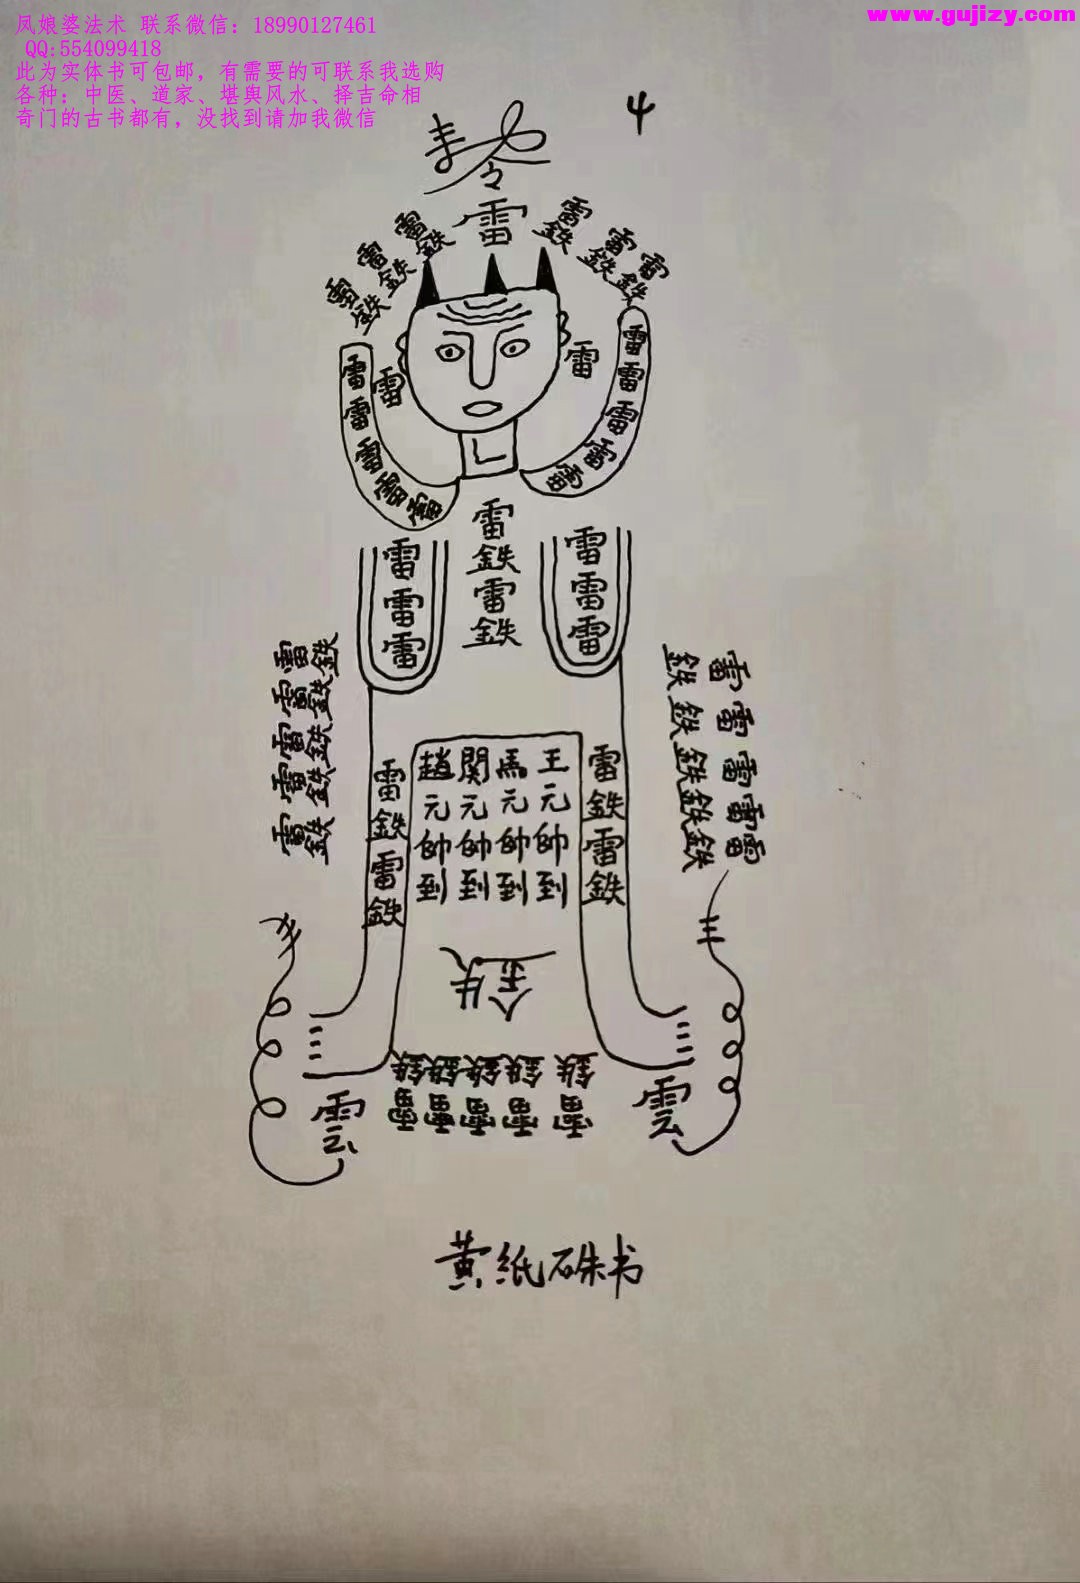 凤娘婆法术 联系微信：18990127461
QQ:554099418
此为实体书可包邮，有需要的可联系我选购
各种；中医、道家、堪舆风水、择吉命相
奇门的古书都有，没找到请加我微信
www.gujizy.com
4
令
雷
雷鉄 雷鉄 雷鉄
雷鉄 雷鉄 雷鉄
雷
雷
雷雷雷雷雷
雷雷雷雷雷
雷鉄雷鉄
雷雷雷
雷雷雷
雷雷雷雷雷
鉄鉄鉄鉄鉄
雷雷雷雷雷
鉄鉄鉄鉄鉄
雷鉄雷鉄
王元帅到
馬元帅到
関元帅到
趙元帅到
雷鉄雷鉄
鉄
鉄鉄鉄鉄鉄
雷雷雷雷雷
雲
雲
黄纸硃书